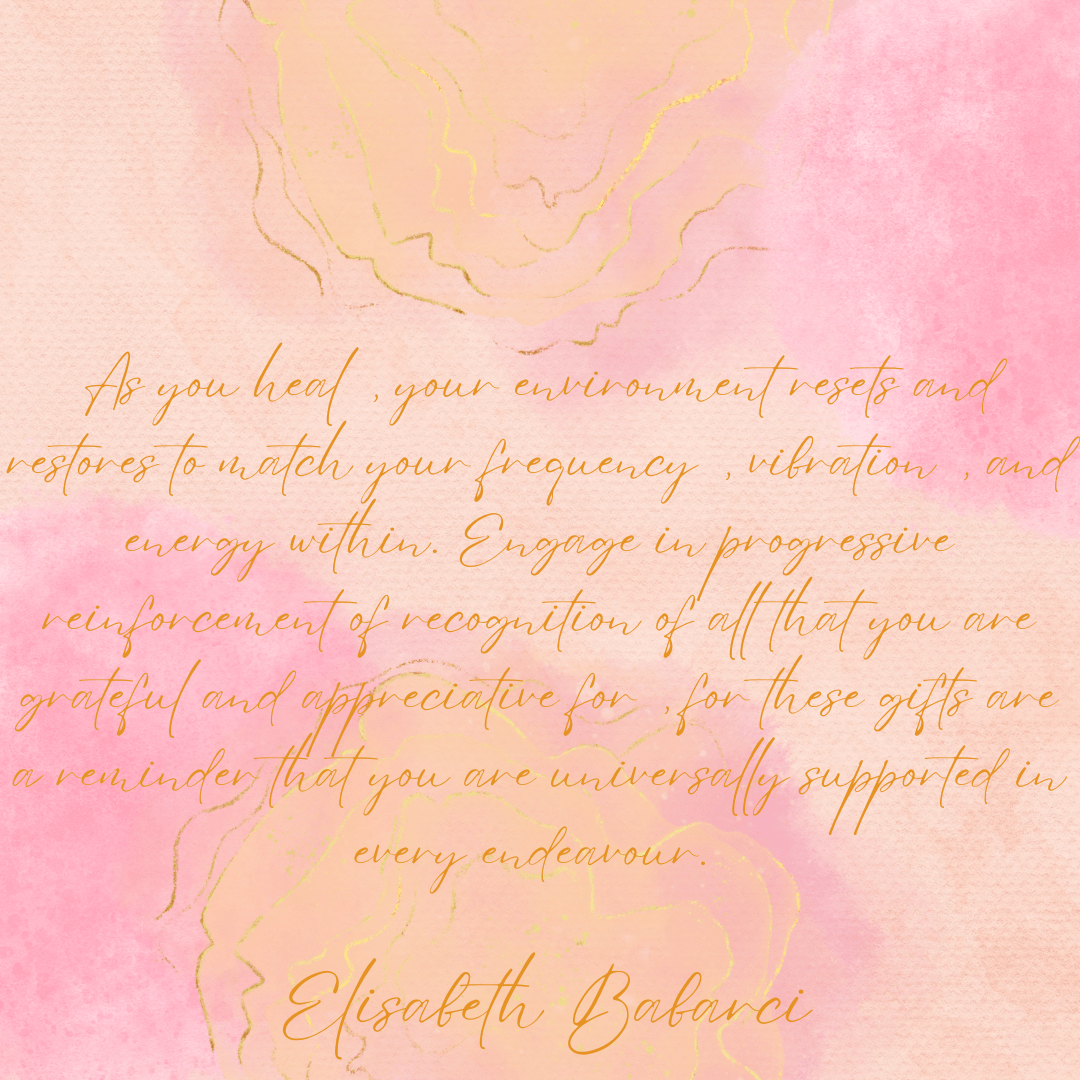 As you heal , your environment resets and
restores to match your frequency , vibration , and
energy within. Engage in progressive
reinforcement of recognition of all that you are
grateful and appreciative for , for these gifts are
a reminder that you are universally supported in
every endeavour.
Elisabeth Babarci